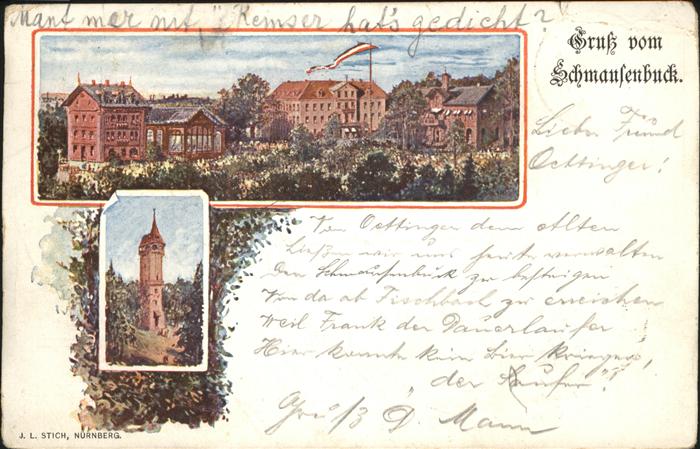 Mant mer nit, "Kemser hat's gedicht?
Gruß vom
Schmausenbuck.
Lieber Freund
Oettinger!
Von Oettinger dem Alten
ließen wir uns heute
Den Schmausenbuck zu besteigen
Von da ab Fischbach zu erreichen
Weil Frank der Dauerlaufer
Hier konnte kein Bier kriegen,
"der Saufer"!
Gruß D. Mann
J. L. STICH, NÜRNBERG.